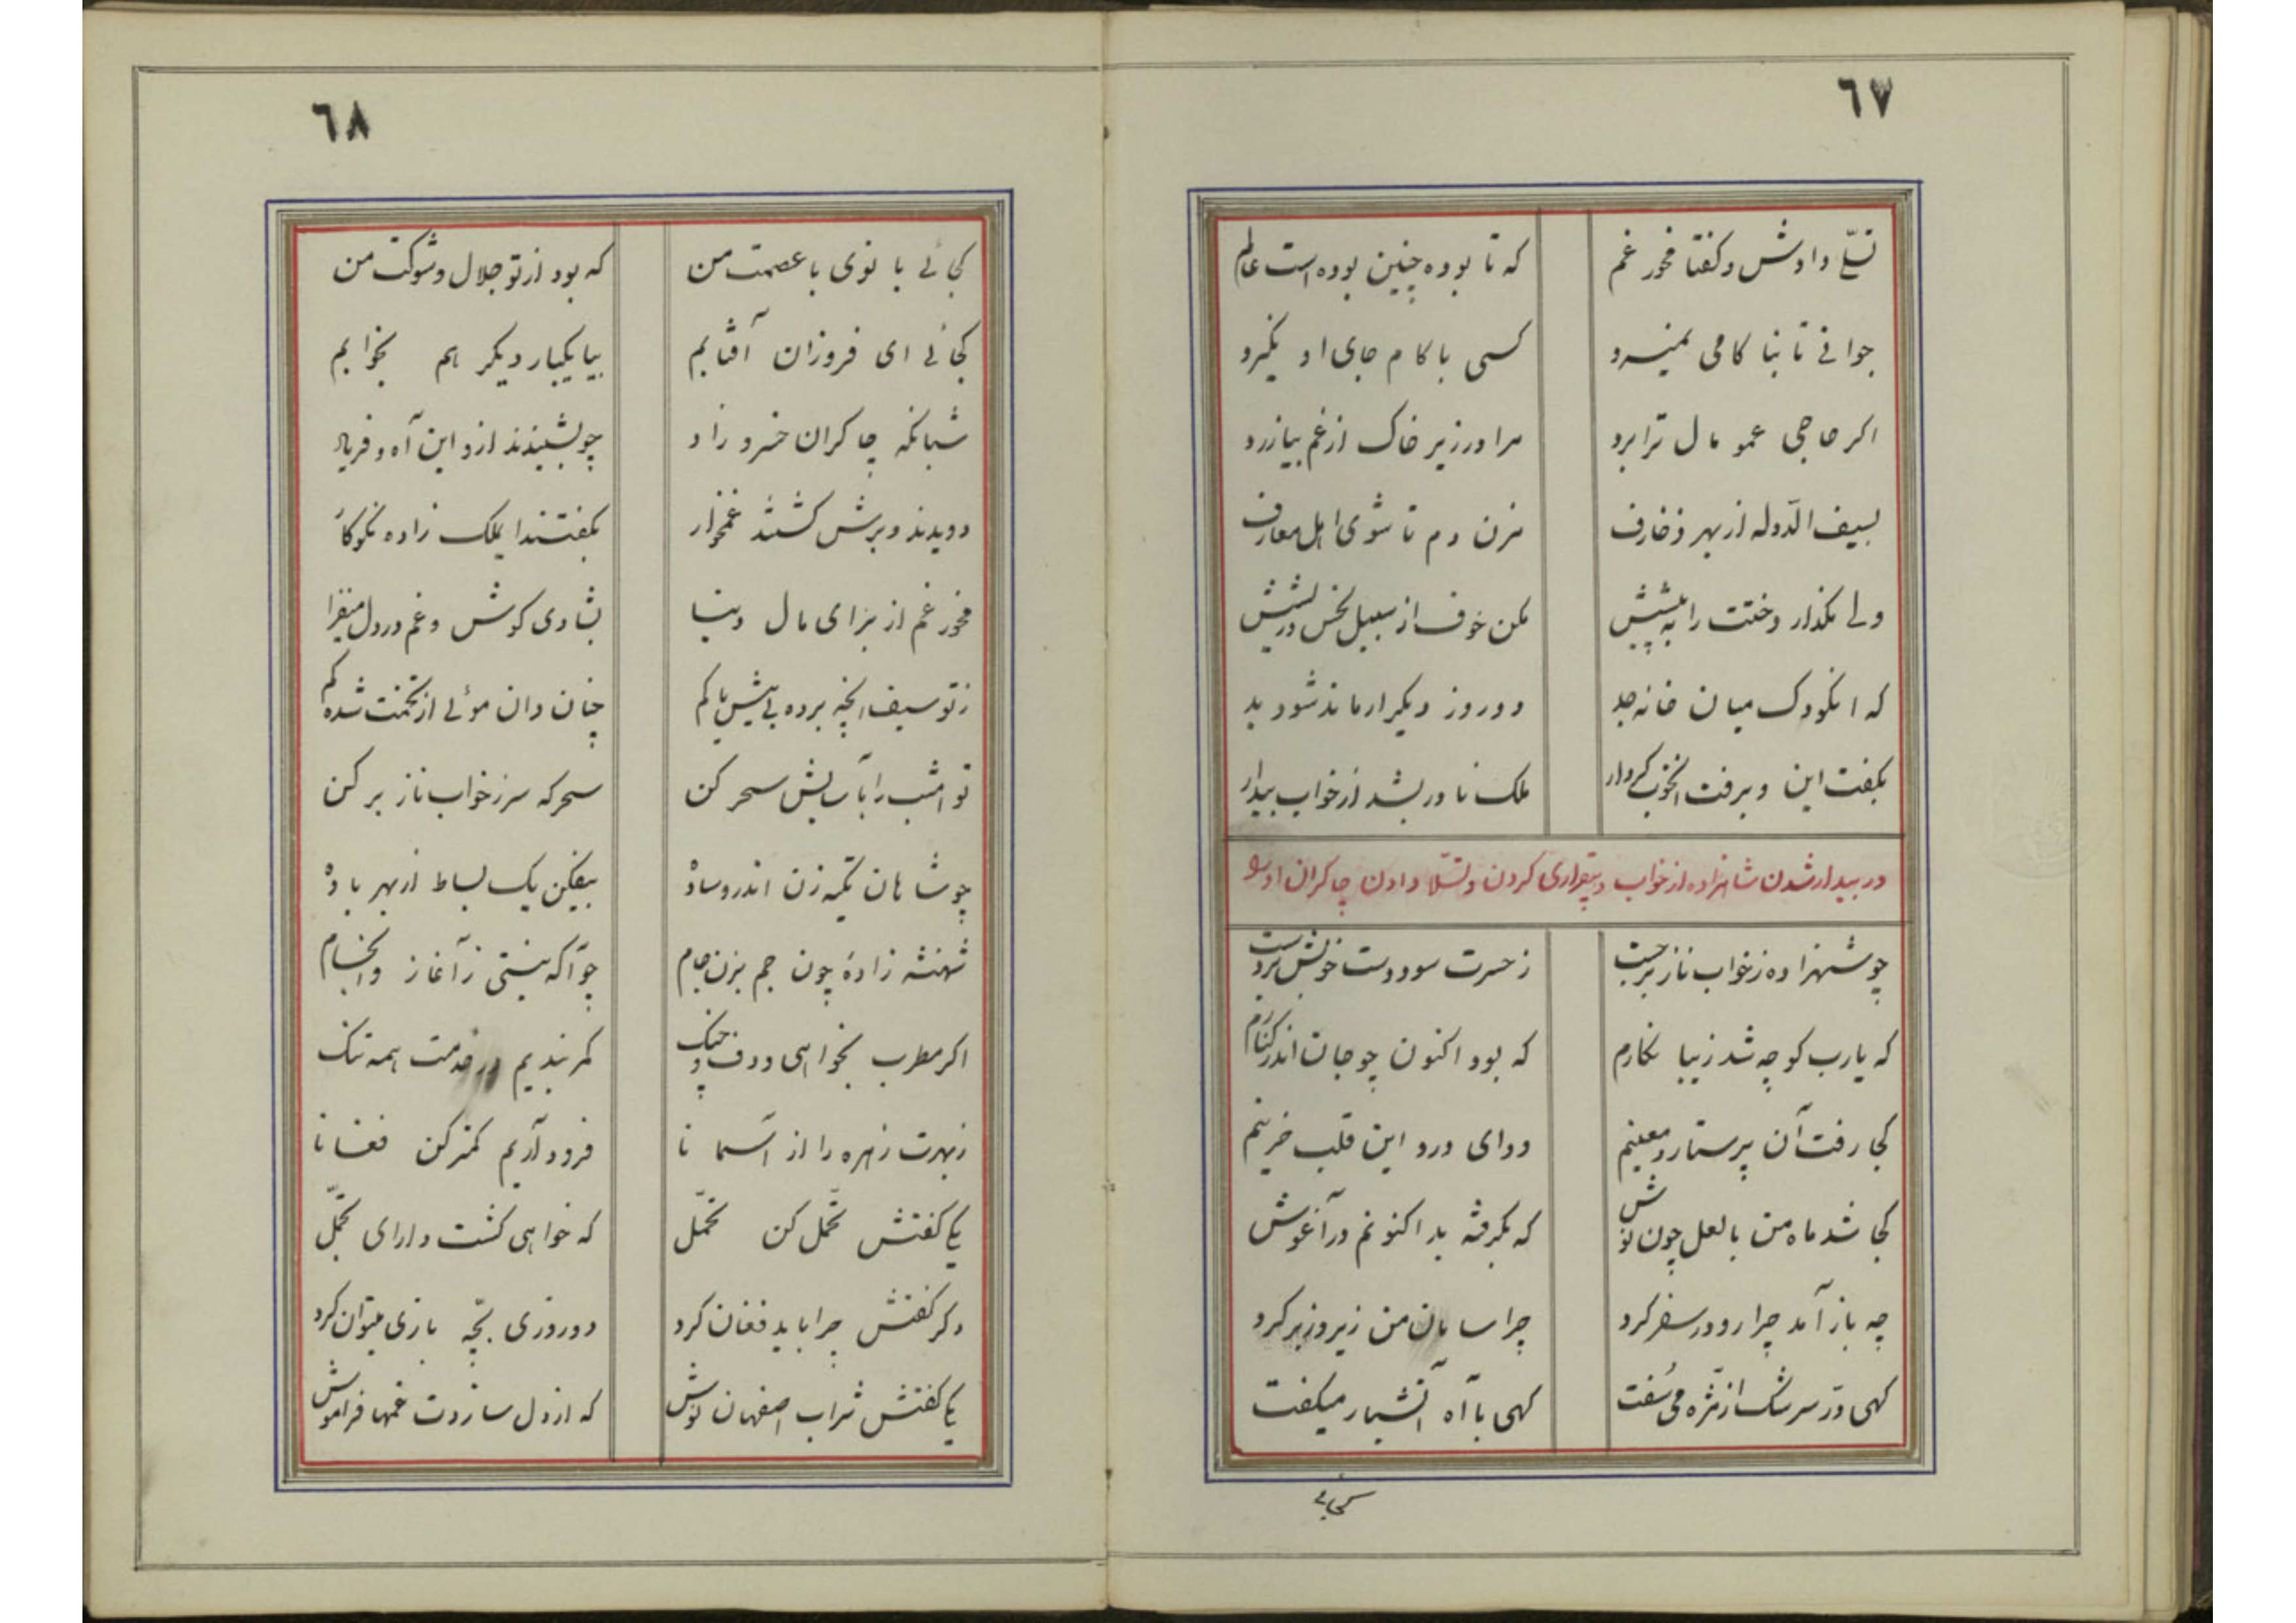 ٦٧
تسلّی دادش و گفتا مخور غم که تا بوده چنین بوده است عالم
جوانی تا بنا کامی نمیرد کسی با کام جای او نگیرد
اگر حاجی عمو مال ترا برد مرا در زیر خاک از غم بیازرد
بسیف الدّوله از بهر زخارف مزن دم تا شوی اهل معارف
ولی مگذار دختت را به پیشش مکن خوف از سبیل و ریشش
که انکودک میان خانه جد دو روز دیگر ار ماند شود بد
بگفت این و برفت انخوب کردار ملک نادر بشد از خواب بیدار
در بیدار شدن شاهزاده از خواب و بیقراری کردن و تسلّا دادن چاکران او را
چو شهزاده ز خواب ناز برجست ز حسرت سود دست خویش بر دست
که یا رب کو چه شد زیبا نگارم که بود اکنون چو جان اندر کنارم
کجا رفت آن پرستار و معینم دوای درد این قلب حزینم
کجا شد ماه من با لعل چون نوش که بگرفته بد اکنونم در آغوش
چه باز آمد چرا رو در سفر کرد چرا سامان من زیر و زبر کرد
گهی درّ سرشک از مژه می سفت گهی با آه آتشبار میگفت
کجائی
٦٨
کجائی با نوی با عصمت من که بود از تو جلال و شوکت من
کجائی ای فروزان آفتابم بیا یکبار دیگر هم بخوابم
شبانگه چاکران خسرو راد چو بشنیدند ازو این آه و فریاد
دویدند و برش گشتند غمخوار بگفتند ایملک زاده نکوکار
مخور غم از برای مال دنیا بشادی کوش و غم در دل میفزا
ز تو سیف انچه برده بیش یا کم چنان دان موئی از تخمت شده کم
تو امشب را بآسایش سحر کن سحرگه سر ز خواب ناز بر کن
چو شاهان تکیه زن اندر وساده بیفکن یک بساط از بهر باده
شهنشه زادهٔ چون جم بزن جام چو آگه نیستی ز آغاز و انجام
اگر مطرب بخواهی و دف و چنگ کمر بندیم در خدمت همه تنگ
ز بهرت زهره را از آسمانا فرود آریم کمتر کن فغانا
یکی گفتش تحمّل کن تحمّل که خواهی گشت دارای تجمّل
دگر گفتش چرا باید فغان کرد دو روزی بچّه بازی میتوان کرد
یکی گفتش شراب اصفهان نوش که از دل سازدت غمها فراموش